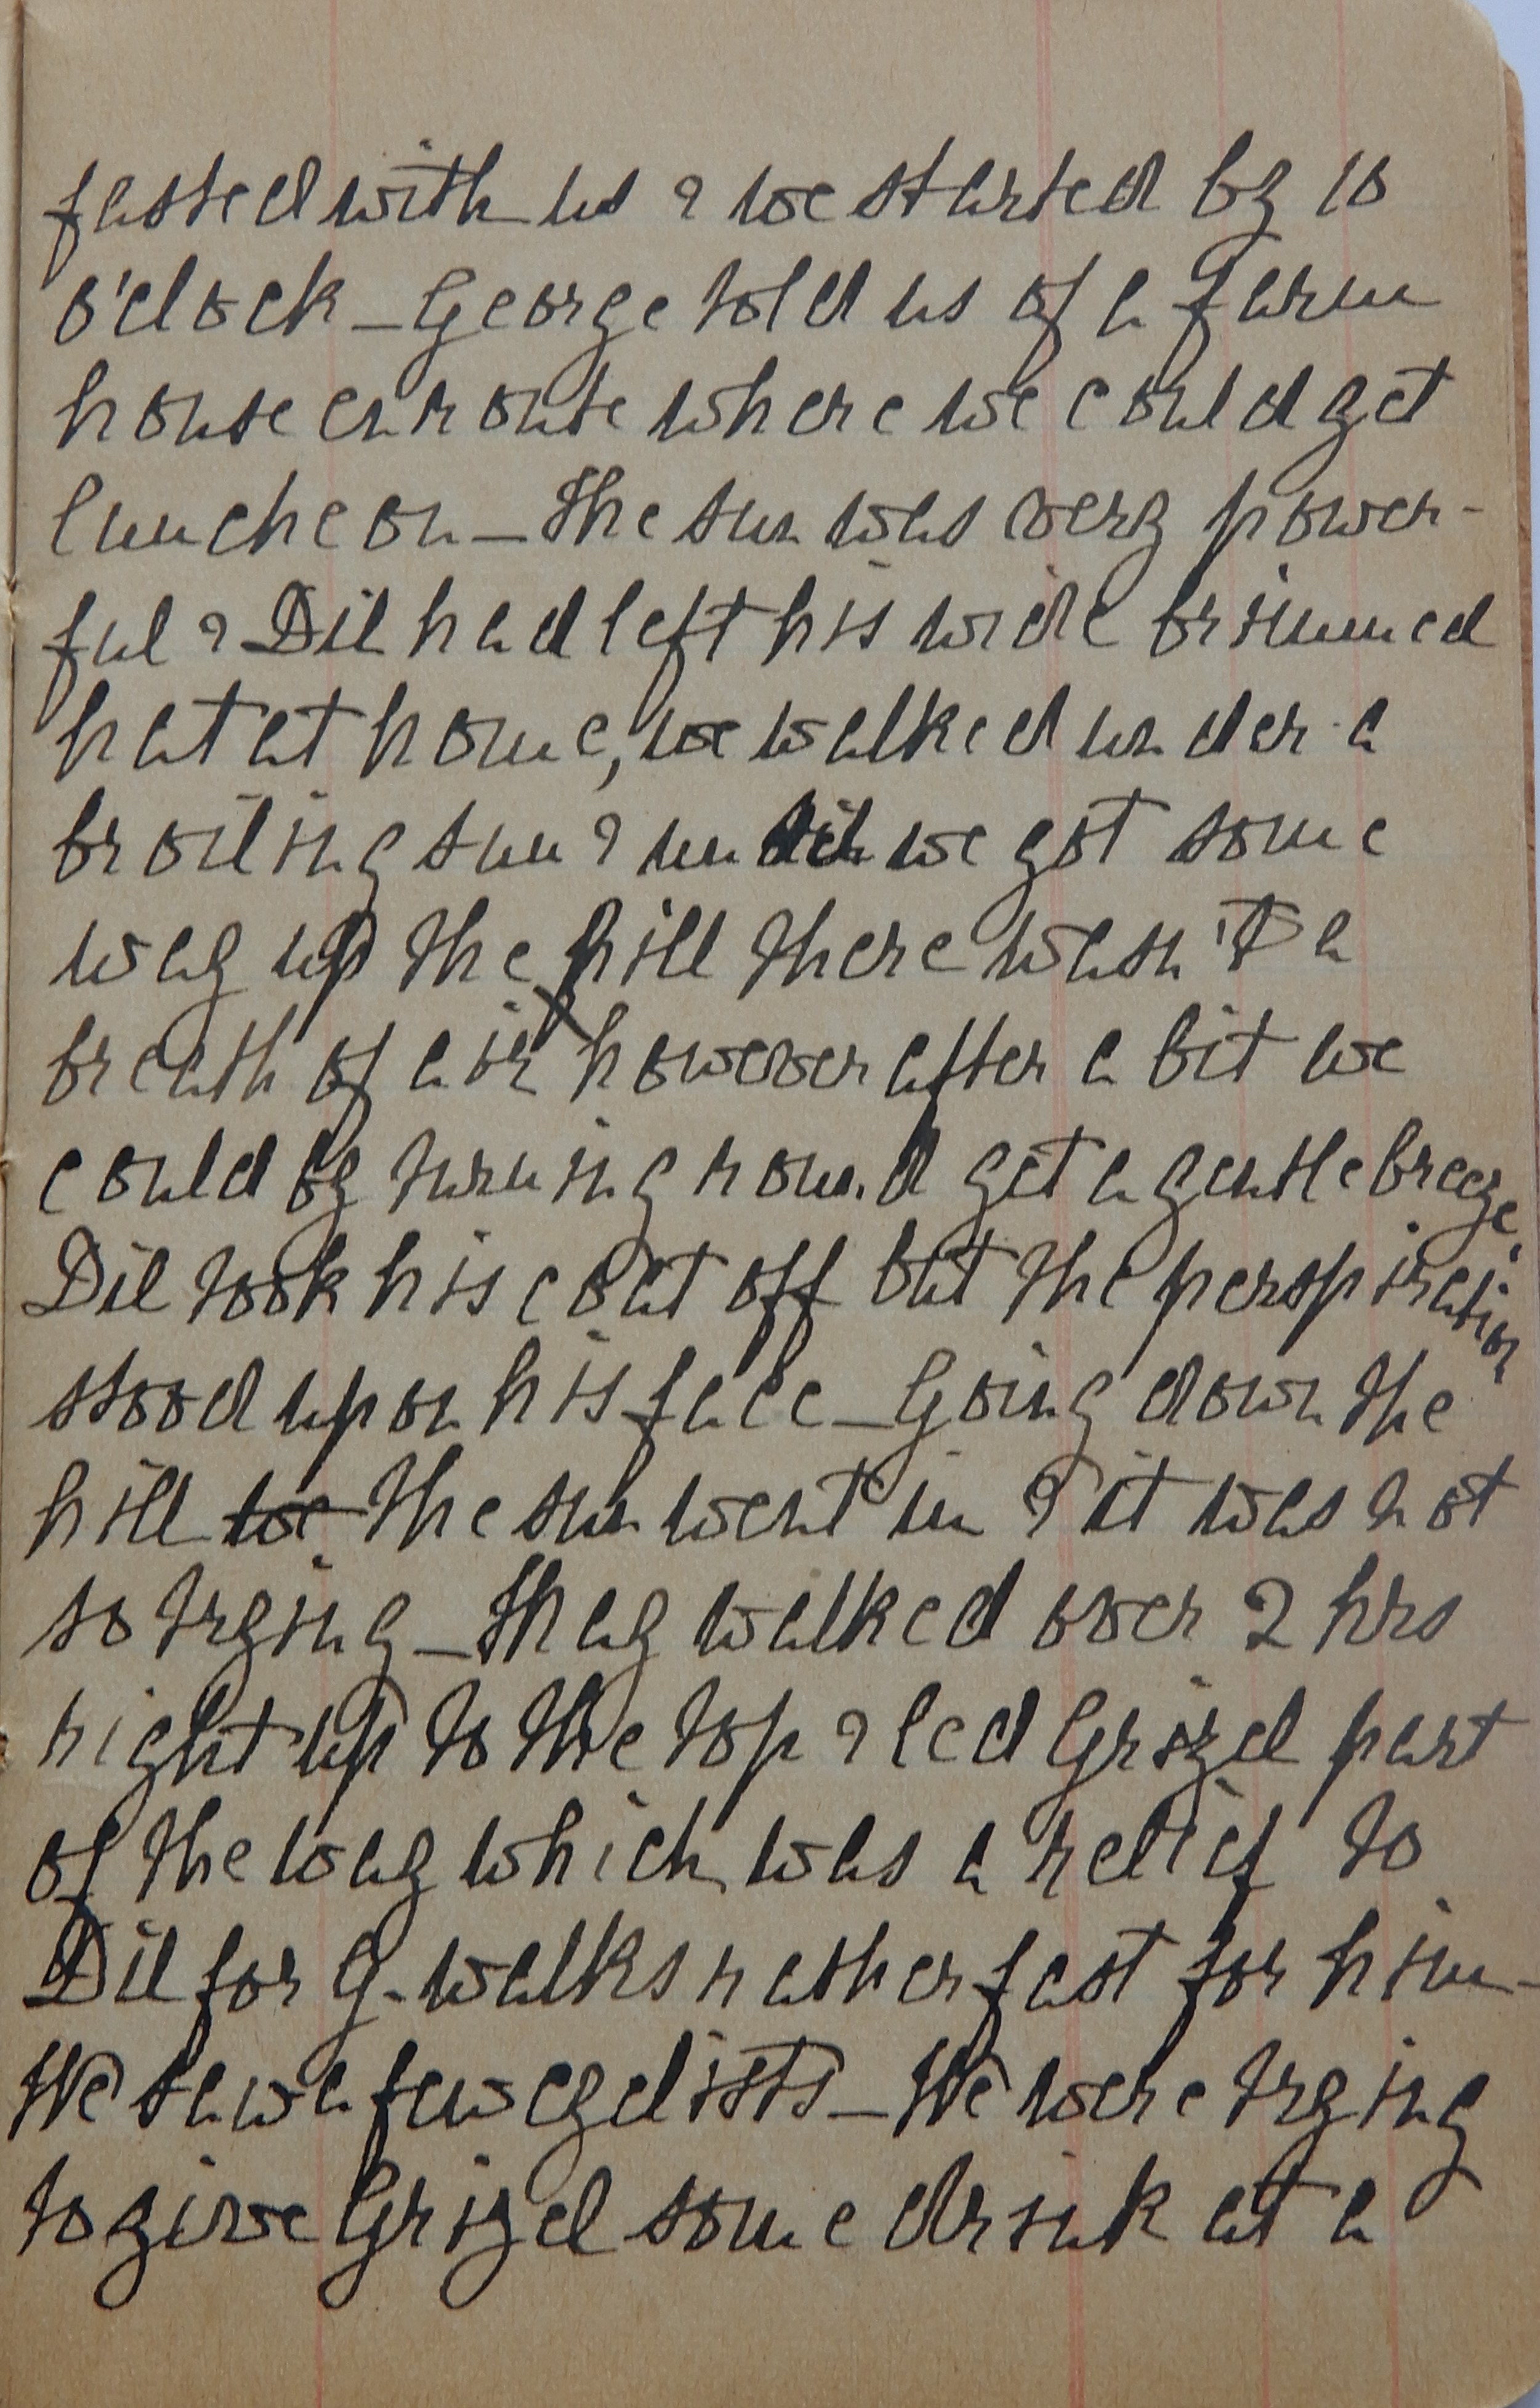 fasted with us & we started by 10
o'clock – George told us of a farm
house en route where we could get
luncheon – The sun was very power-
ful & Dil had left his wide brimmed
hat at home, we walked under a
broiling sun & until we got some
way up the hill there wasn't a
breath of air however after a bit we
could by turning round get a gentle breeze.
Dil took his coat off but the perspiration
stood upon his face – Going down the
hill we the sun went in & it was not
so trying – They walked over 2 hrs
right up to the top & led Grizel part
of the way which was a relief to
Dil for G. walks rather fast for him –
We saw a few cyclists – We were trying
to give Grizel some drink at a